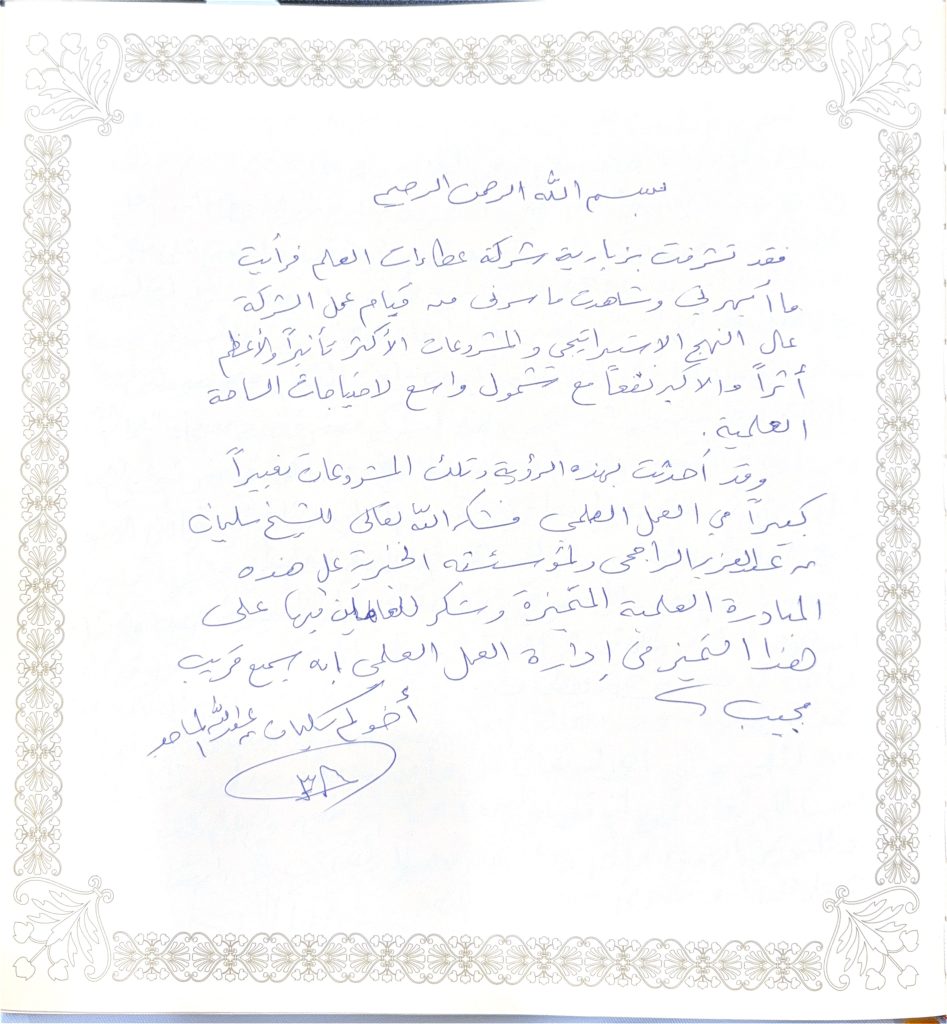 بسم الله الرحمن الرحيم
فقد تشرفت بزيارة شركة عطاءات العلم فرأيت
ما أبهرني وشاهدت ما سرني من قيام عمل الشركة
على النهج الاستراتيجي والمشروعات الأكثر تأثيراً والأعظم
أثراً والأكبر نفعاً مع شمول واسع لاحتياجات الساحة
العلمية .
وقد أحدثت بهذه الرؤية وتلك المشروعات تغييراً
كبيراً في العمل العلمي فشكر الله تعالى للشيخ سليمان
بن عبدالعزيز الراجحي ولمؤسسته الخيرية على هذه
المبادرة العلمية المتميزة وشكر للعاملين فيها على
هذا التميز في إدارة العمل العلمي إنه سميع قريب
مجيب
أخوكم سليمان بن عبدالله الماجد